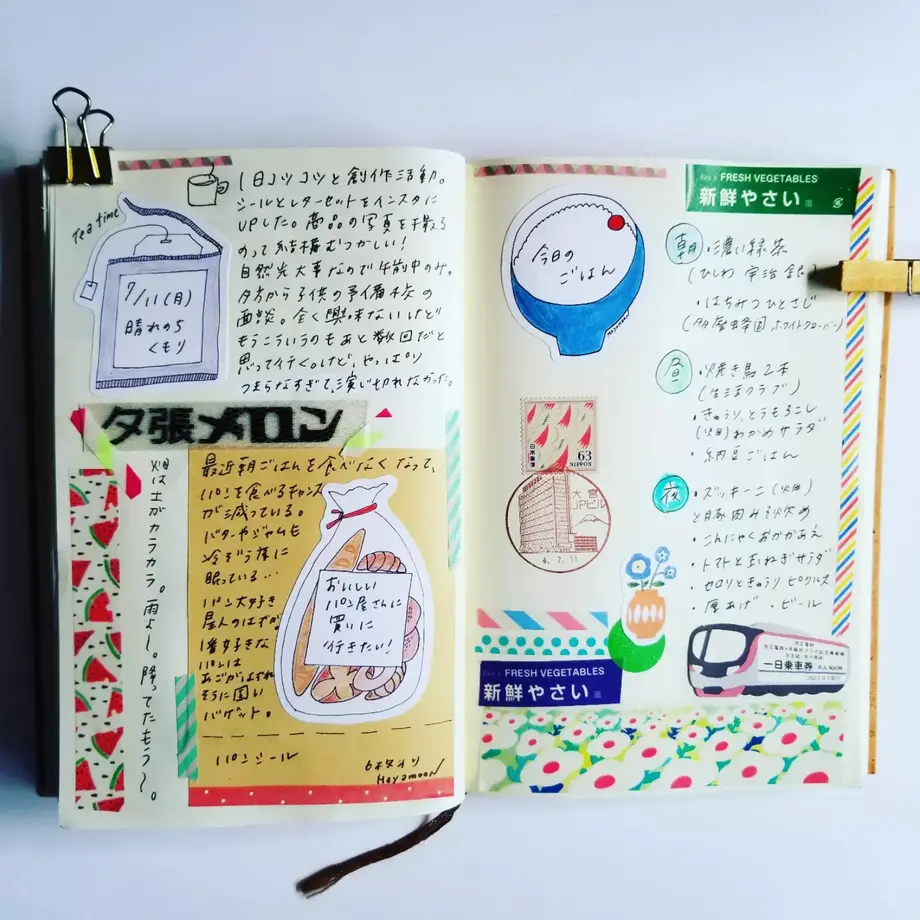 Tea time
7/11(月)
晴れのち
くもり
1日コツコツと創作活動。
シールとレターセットをインスタに
UPした。商品の写真を撮る
のって結構むつかしい！
自然光大事なので午前中のみ。
夕方から子供の予備校の
面談。全く興味ないけど
もうこういうのもあと数回だと
思って行く。けど、やっぱり
つまらなすぎて、演じ切れなかった。
夕張メロン
畑は土がカラカラ。雨よし。降ってたもう〜。
最近朝ごはんを食べなくなって、
パンを食べるチャンス
が減っている。
バターやジャムも
冷ぞう様に
眠っている…
パン大好き
星人のはずが。
1番好きな
パンは
あごがはずれ
そうに固い
バゲット。
おいしい
パン屋さんに
買いに
行きたい！
パンシール
6枚入り
HoyamooN
今日の
ごはん
FRESH VEGETABLES
新鮮やさい
朝
・濃い緑茶
(ひしわ 宇治
・はちみつひとさじ
(多摩虫菜園 ホワイトクローバー)
昼
・焼き鳥2本
(生活クラブ)
・きゅうり、とうもろこし
(畑)わかめサラダ
・納豆ごはん
夜
・ズッキーニ(畑)
と豚肉みそ炒め
・こんにゃくおかかあえ
・トマトと玉ねぎサラダ
・セロリときゅうりピクルス
・厚あげ ・ビール
日本郵便
63
NIPPON
大宮
JPビル
4.7.11
FRESH VEGETABLES
新鮮やさい
一日乗車券